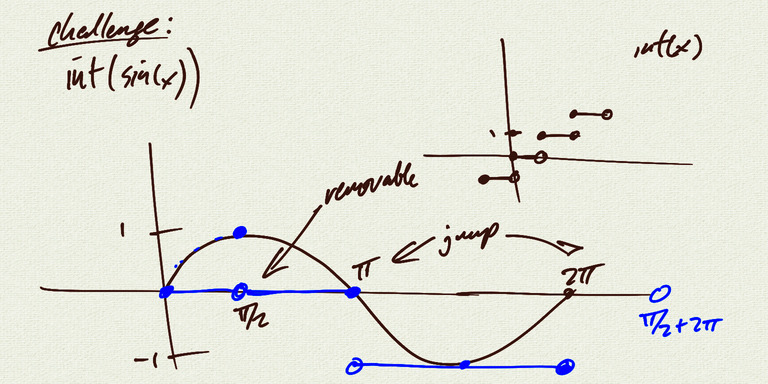 challenge:
int(sin(x))
int(x)
1
removable
1
jump
π
2π
π/2
π/2 + 2π
-1